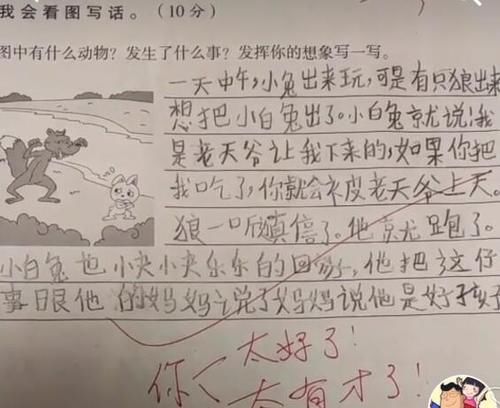 我会看图写话。（10分）
图中有什么动物？发生了什么事？发挥你的想象写一写。
一天中午，小兔出来玩，可是有只狼出来
想把小白兔出了。小白兔京尤说：我
是老天爷让我下来的，如果你把
我吃了，你就会被老天爷上天。
狼一听真信了。他京尤跑了。
小白兔也小夬小夬乐乐的回家，他把这仔
事跟他的妈妈说了妈妈说他是好孩子
你太好了！
太有才了！